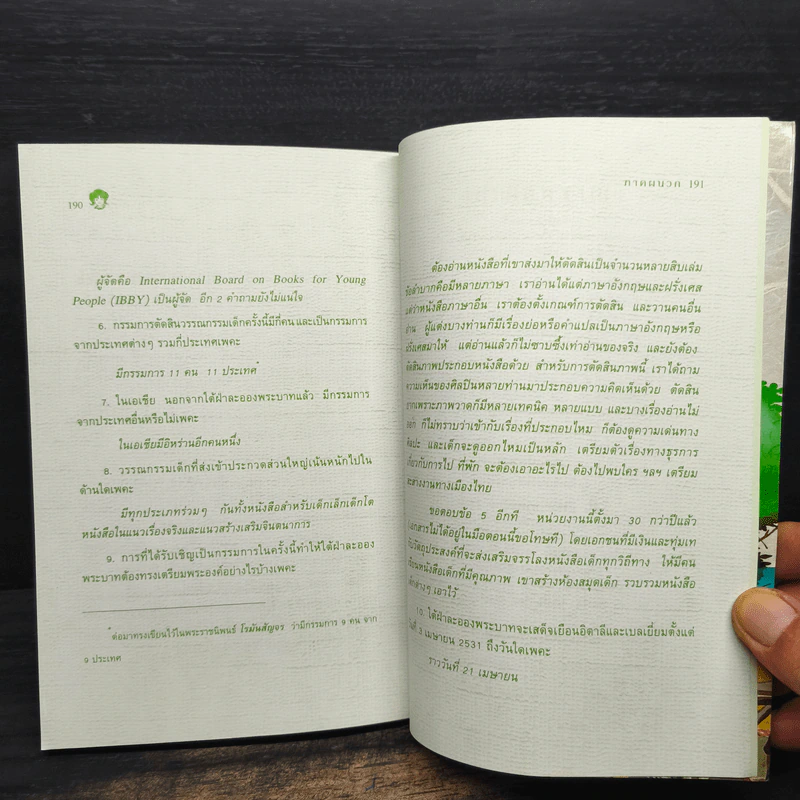 190
ผู้จัดคือ International Board on Books for Young
People (IBBY) เป็นผู้จัด อีก 2 คำถามยังไม่แน่ใจ
6. กรรมการตัดสินวรรณกรรมเด็กครั้งนี้มีกี่คน และเป็นกรรมการ
จากประเทศต่างๆ รวมกี่ประเทศเพคะ
มีกรรมการ 11 คน 11 ประเทศ*
7. ในเอเชีย นอกจากใต้ฝ่าละอองพระบาทแล้ว มีกรรมการ
จากประเทศอื่นหรือไม่เพคะ
ในเอเชียมีอิหร่านอีกคนหนึ่ง
8. วรรณกรรมเด็กที่ส่งเข้าประกวดส่วนใหญ่เน้นหนักไปใน
ด้านใดเพคะ
มีทุกประเภทร่วมๆ กันทั้งหนังสือสำหรับเด็กเล็กเด็กโต
หนังสือในแนวเรื่องจริงและแนวสร้างเสริมจินตนาการ
9. การที่ได้รับเชิญเป็นกรรมการในครั้งนี้ทำให้ใต้ฝ่าละออง
พระบาทต้องทรงเตรียมพระองค์อย่างไรบ้างเพคะ
*ต่อมาทรงเขียนไว้ในพระราชนิพนธ์ โรมันสัญจร ว่ามีกรรมการ 9 คน จาก
9 ประเทศ
ภาคผนวก 191
ต้องอ่านหนังสือที่เขาส่งมาให้ตัดสินเป็นจำนวนหลายสิบเล่ม
ข้อลำบากคือมีหลายภาษา เราอ่านได้แต่ภาษาอังกฤษและฝรั่งเศส
แต่ว่าหนังสือภาษาอื่น เราต้องตั้งเกณฑ์การตัดสิน และวานคนอื่น
อ่าน ผู้แต่งบางท่านก็มีเรื่องย่อหรือคำแปลเป็นภาษาอังกฤษหรือ
ฝรั่งเศสมาให้ แต่อ่านแล้วก็ไม่ซาบซึ้งเท่าอ่านของจริง และยังต้อง
ตัดสินภาพประกอบหนังสือด้วย สำหรับการตัดสินภาพนี้ เราได้ถาม
ความเห็นของศิลปินหลายท่านมาประกอบความคิดเห็นด้วย ตัดสิน
ยากเพราะภาพวาดก็มีหลายเทคนิค หลายแบบ และบางเรื่องอ่านไม่
ออก ก็ไม่ทราบว่าเข้ากับเรื่องที่ประกอบไหม ก็ต้องดูความเด่นทาง
ศิลปะ และเด็กจะดูออกไหมเป็นหลัก เตรียมตัวเรื่องทางธุรการ
เกี่ยวกับการไป ที่พัก จะต้องเอาอะไรไป ต้องไปพบใคร ฯลฯ เตรียม
สะสางงานทางเมืองไทย
ขอตอบข้อ 5 อีกที หน่วยงานนี้ตั้งมา 30 กว่าปีแล้ว
(เอกสารไม่ได้อยู่ในมือตอนนี้ขอโทษที) โดยเอกชนที่มีเงินและทุ่มเท
มีวัตถุประสงค์ที่จะส่งเสริมจรรโลงหนังสือเด็กทุกวิถีทาง ให้มีคน
เขียนหนังสือเด็กที่มีคุณภาพ เขาสร้างห้องสมุดเด็ก รวบรวมหนังสือ
เด็กต่างๆ เอาไว้
10. ใต้ฝ่าละอองพระบาทจะเสด็จเยือนอิตาลีและเบลเยี่ยมตั้งแต่
วันที่ 3 เมษายน 2531 ถึงวันใดเพคะ
ราววันที่ 21 เมษายน